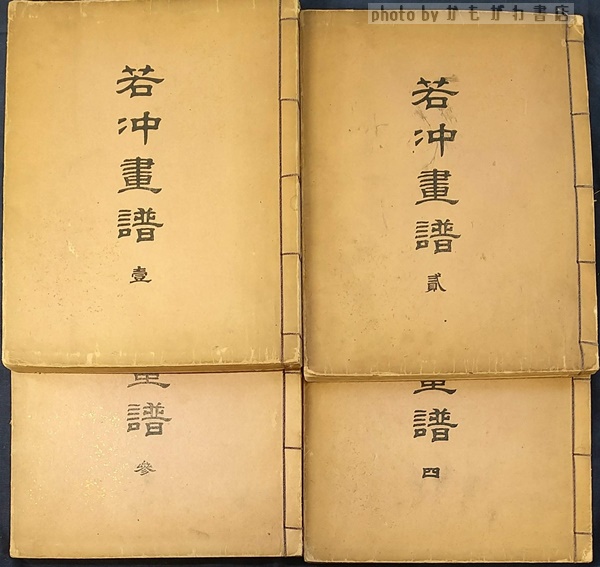 photo by かもがわ書店
若冲畫譜
壹
若冲畫譜
貳
畫譜
參
畫譜
四